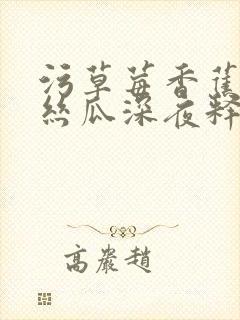 污草莓香蕉
丝瓜深夜释
高嚴趙